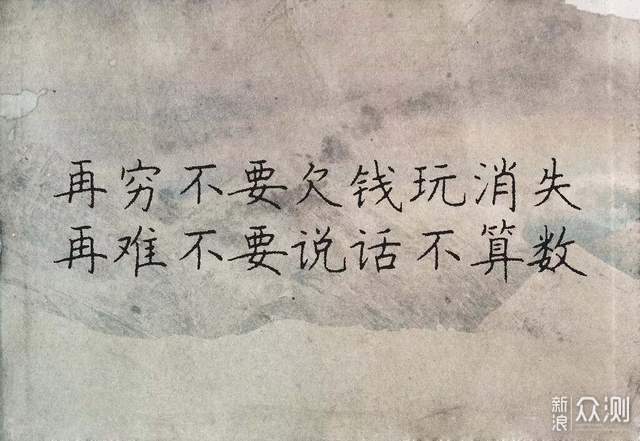 再穷不要欠钱玩消失
再难不要说话不算数
新浪众测